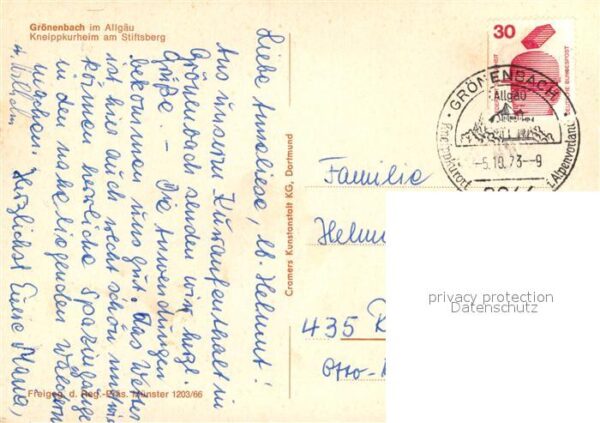 Grönenbach im Allgäu
Kneippkurheim am Stiftsberg
Liebe Anneliese, lb. Helmut!
Aus unserm Kuraufenthalt in
Grönenbach senden wir hzgl.
Grüße. - Die Anwendungen
bekommen uns gut. Das Wetter
ist hier auch recht schön und wir
können herrliche Spaziergänge
in den naheliegenden Wäldern
machen. Herzlichst Eure Mama,
u. Wilhelm
Freigeg. d. Reg.-Präs. Münster 1203/66
Cramers Kunstanstalt KG, Dortmund
30
DEUTSCHE BUNDESPOST
GRÖNENBACH
Allgäu
-5.10.73-9
Alpenvorland
Familie
Helm
435 R
Otto-
privacy protection
Datenschutz